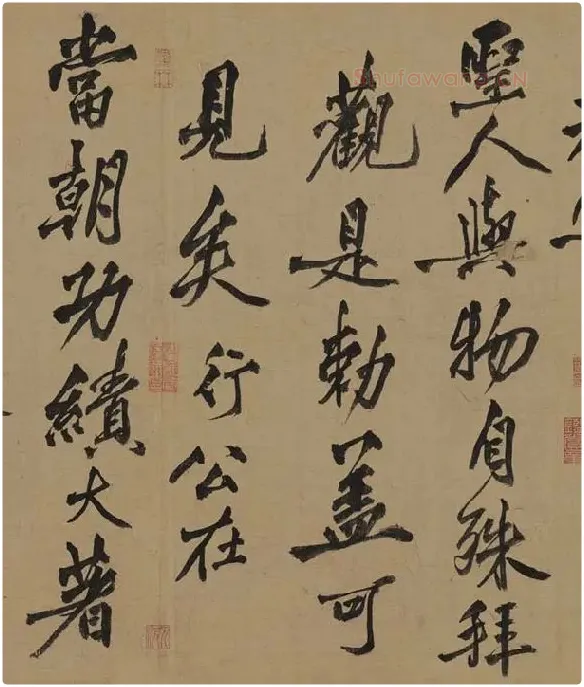 聖人與物自殊拜
觀是勅盖可
見矣行公在
當朝功績大著